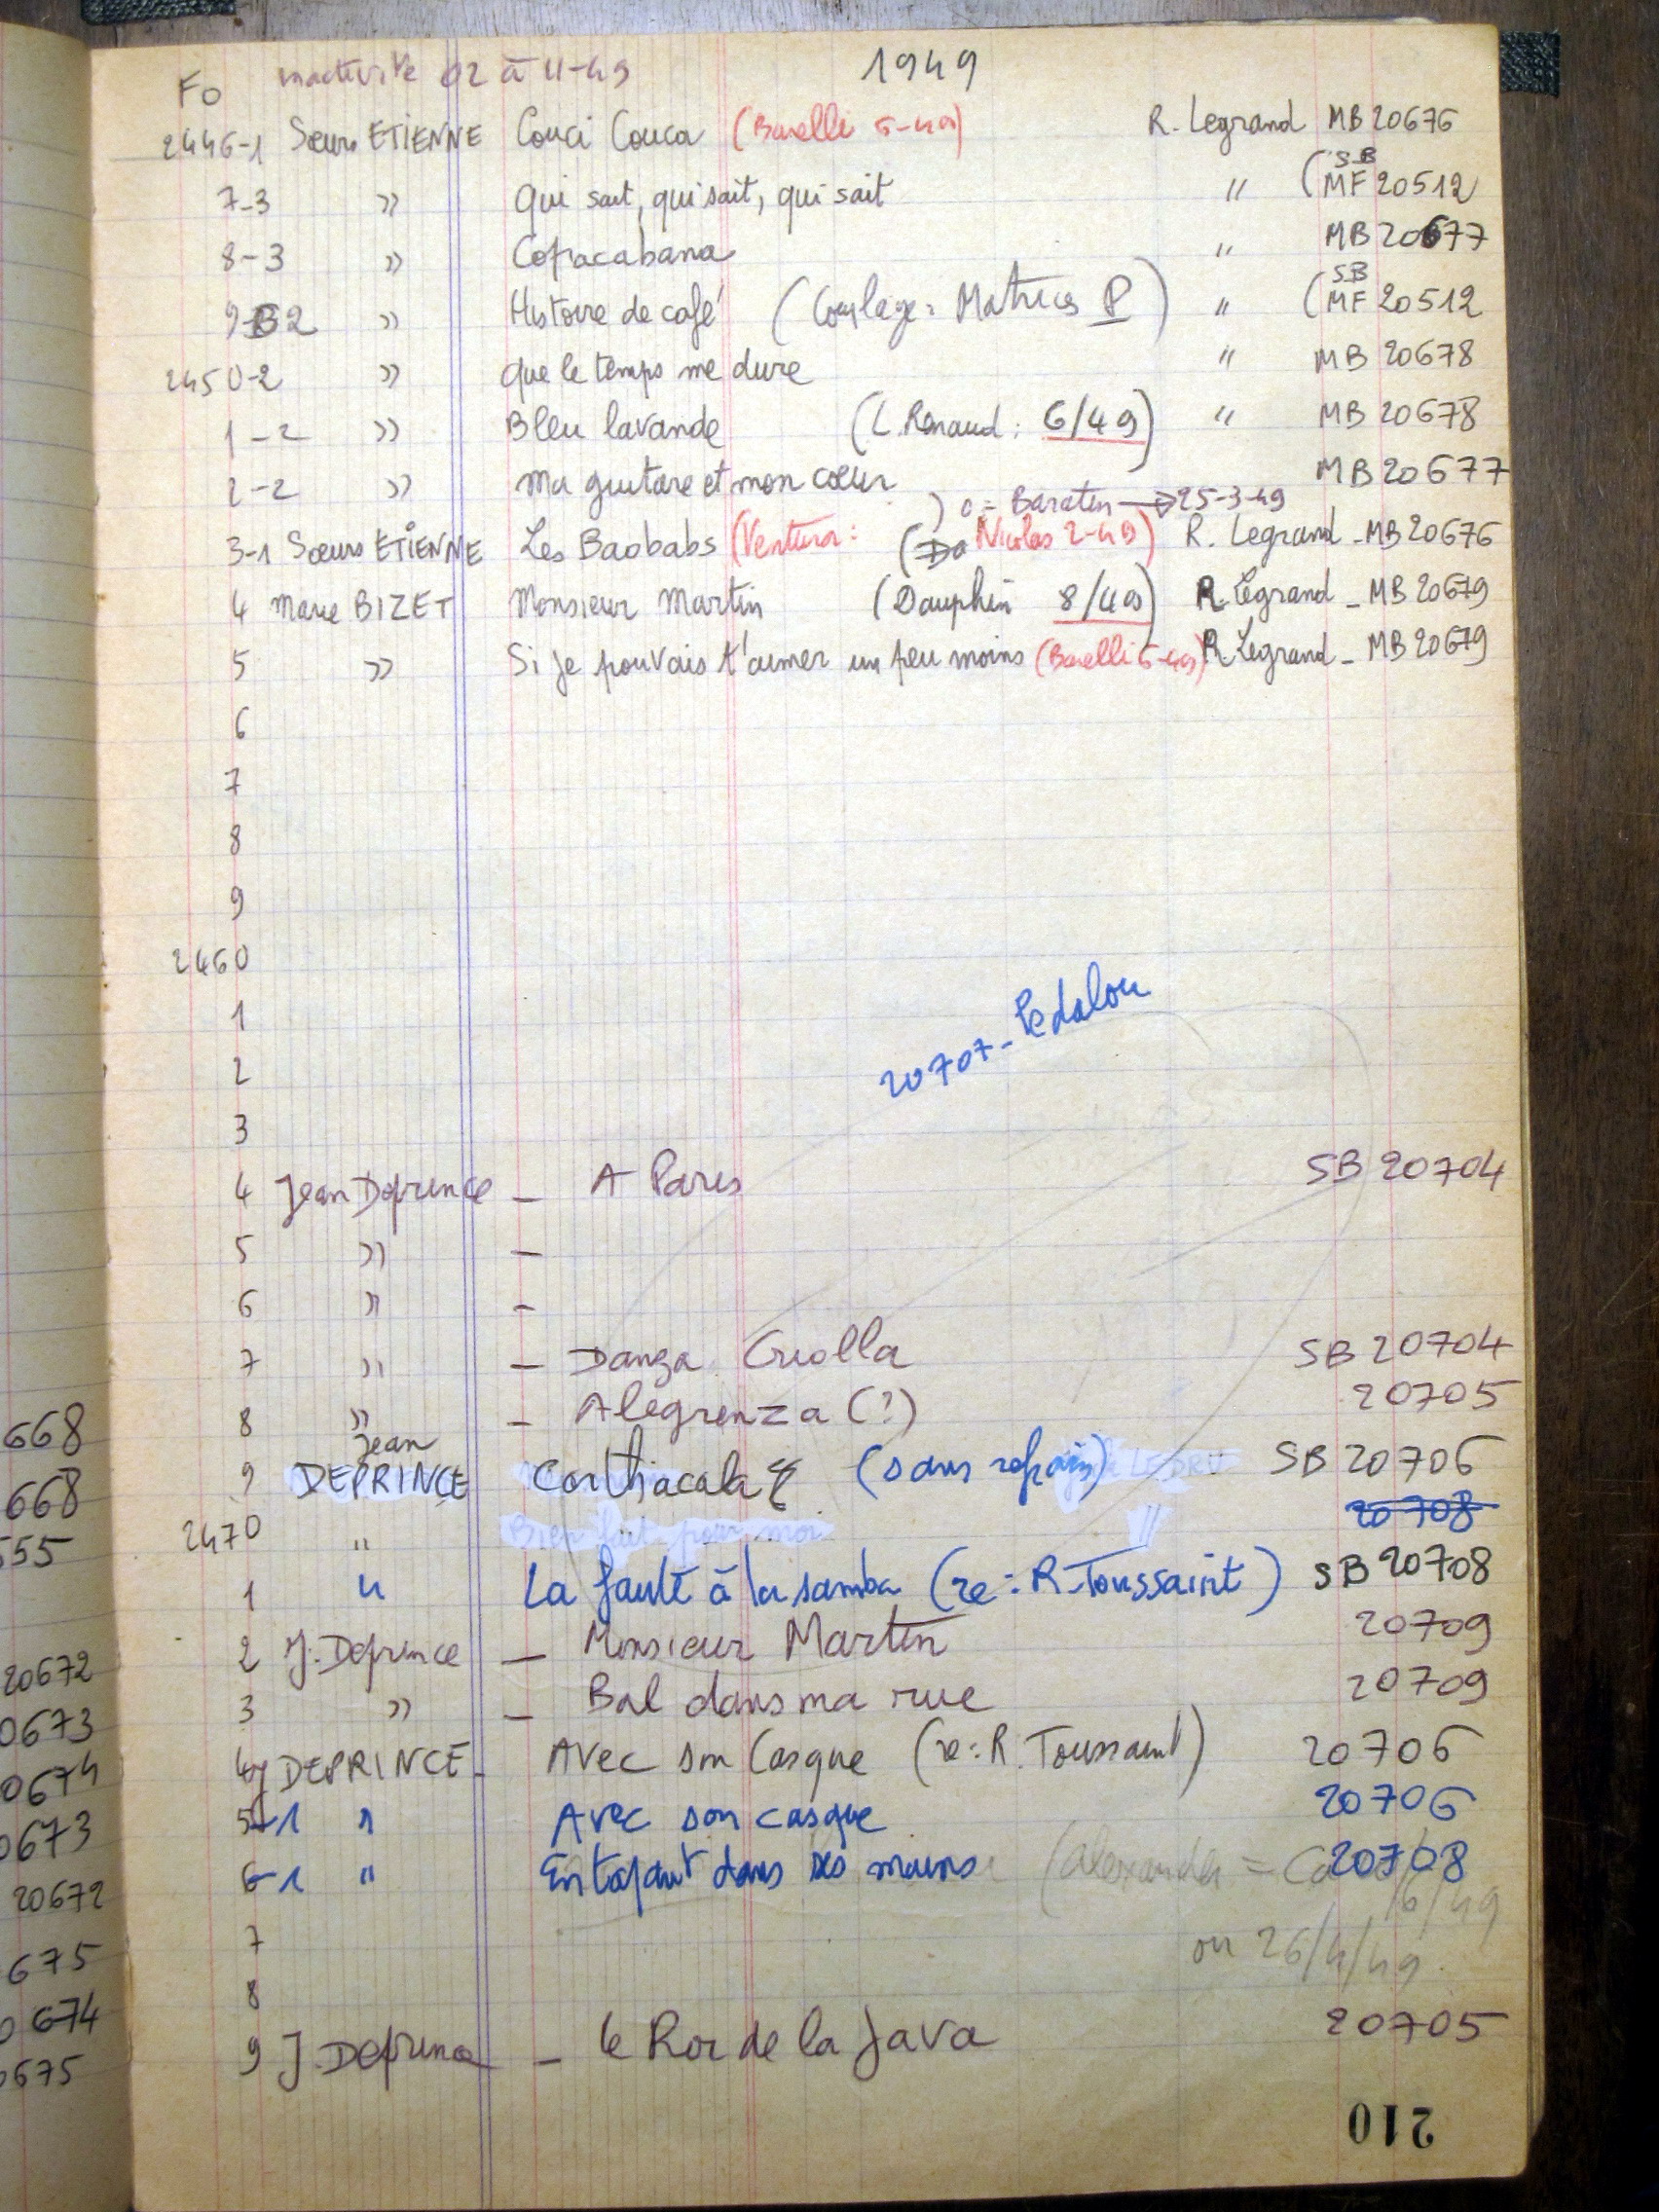 Fo inactivité 02 à 11-49 1949
2446-1 Sœurs ETIENNE Couci Couca (Barelli 5-49) R. Legrand MB 20676
7-3 » Qui sait, qui sait, qui sait " (SB MF 20512
8-3 » Copacabana " MB 20677
9-B2 » Histoire de café (Couplage = Matrices P) " (SB MF 20512
2450-2 » Que le temps me dure " MB 20678
1-2 » Bleu lavande (L. Renaud : 6/49) " MB 20678
2-2 » Ma guitare et mon cœur MB 20677
) o = Baratin → 25-3-49
3-1 Sœurs ETIENNE Les Baobabs (Ventura : (Do Nicolas 2-49) R. Legrand - MB 20676
4 Marie BIZET Monsieur Martin (Dauphin 8/49) R. Legrand - MB 20679
5 » Si je pouvais t'aimer un peu moins (Barelli 5-49) R Legrand - MB 20679
6
7
8
9
2460
1
20707 - Pedalou
2
3
4 Jean Deprince - A Paris SB 20704
5 » -
6 » -
7 » - Danza Criolla SB 20704
8 » - Alegrenza (?) 20705
9 Jean DEPRINCE (sans refrain) SB 20706
20708
2470 " Bien fait pour moi "
1 " La faute à la samba (re : R. Toussaint) SB 20708
2 J. Deprince - Monsieur Martin 20709
3 » - Bal dans ma rue 20709
4 J DEPRINCE - Avec son Casque (re : R. Toussaint) 20706
5-1 " Avec son casque 20706
6-1 " En tapant dans ses mains (Alexander = 20708
6/49
7 ou 26/4/49
8
9 J. Deprince - Le Roi de la Java 20705
210
668
668
555
20672
0673
0674
0673
20672
675
0674
0675